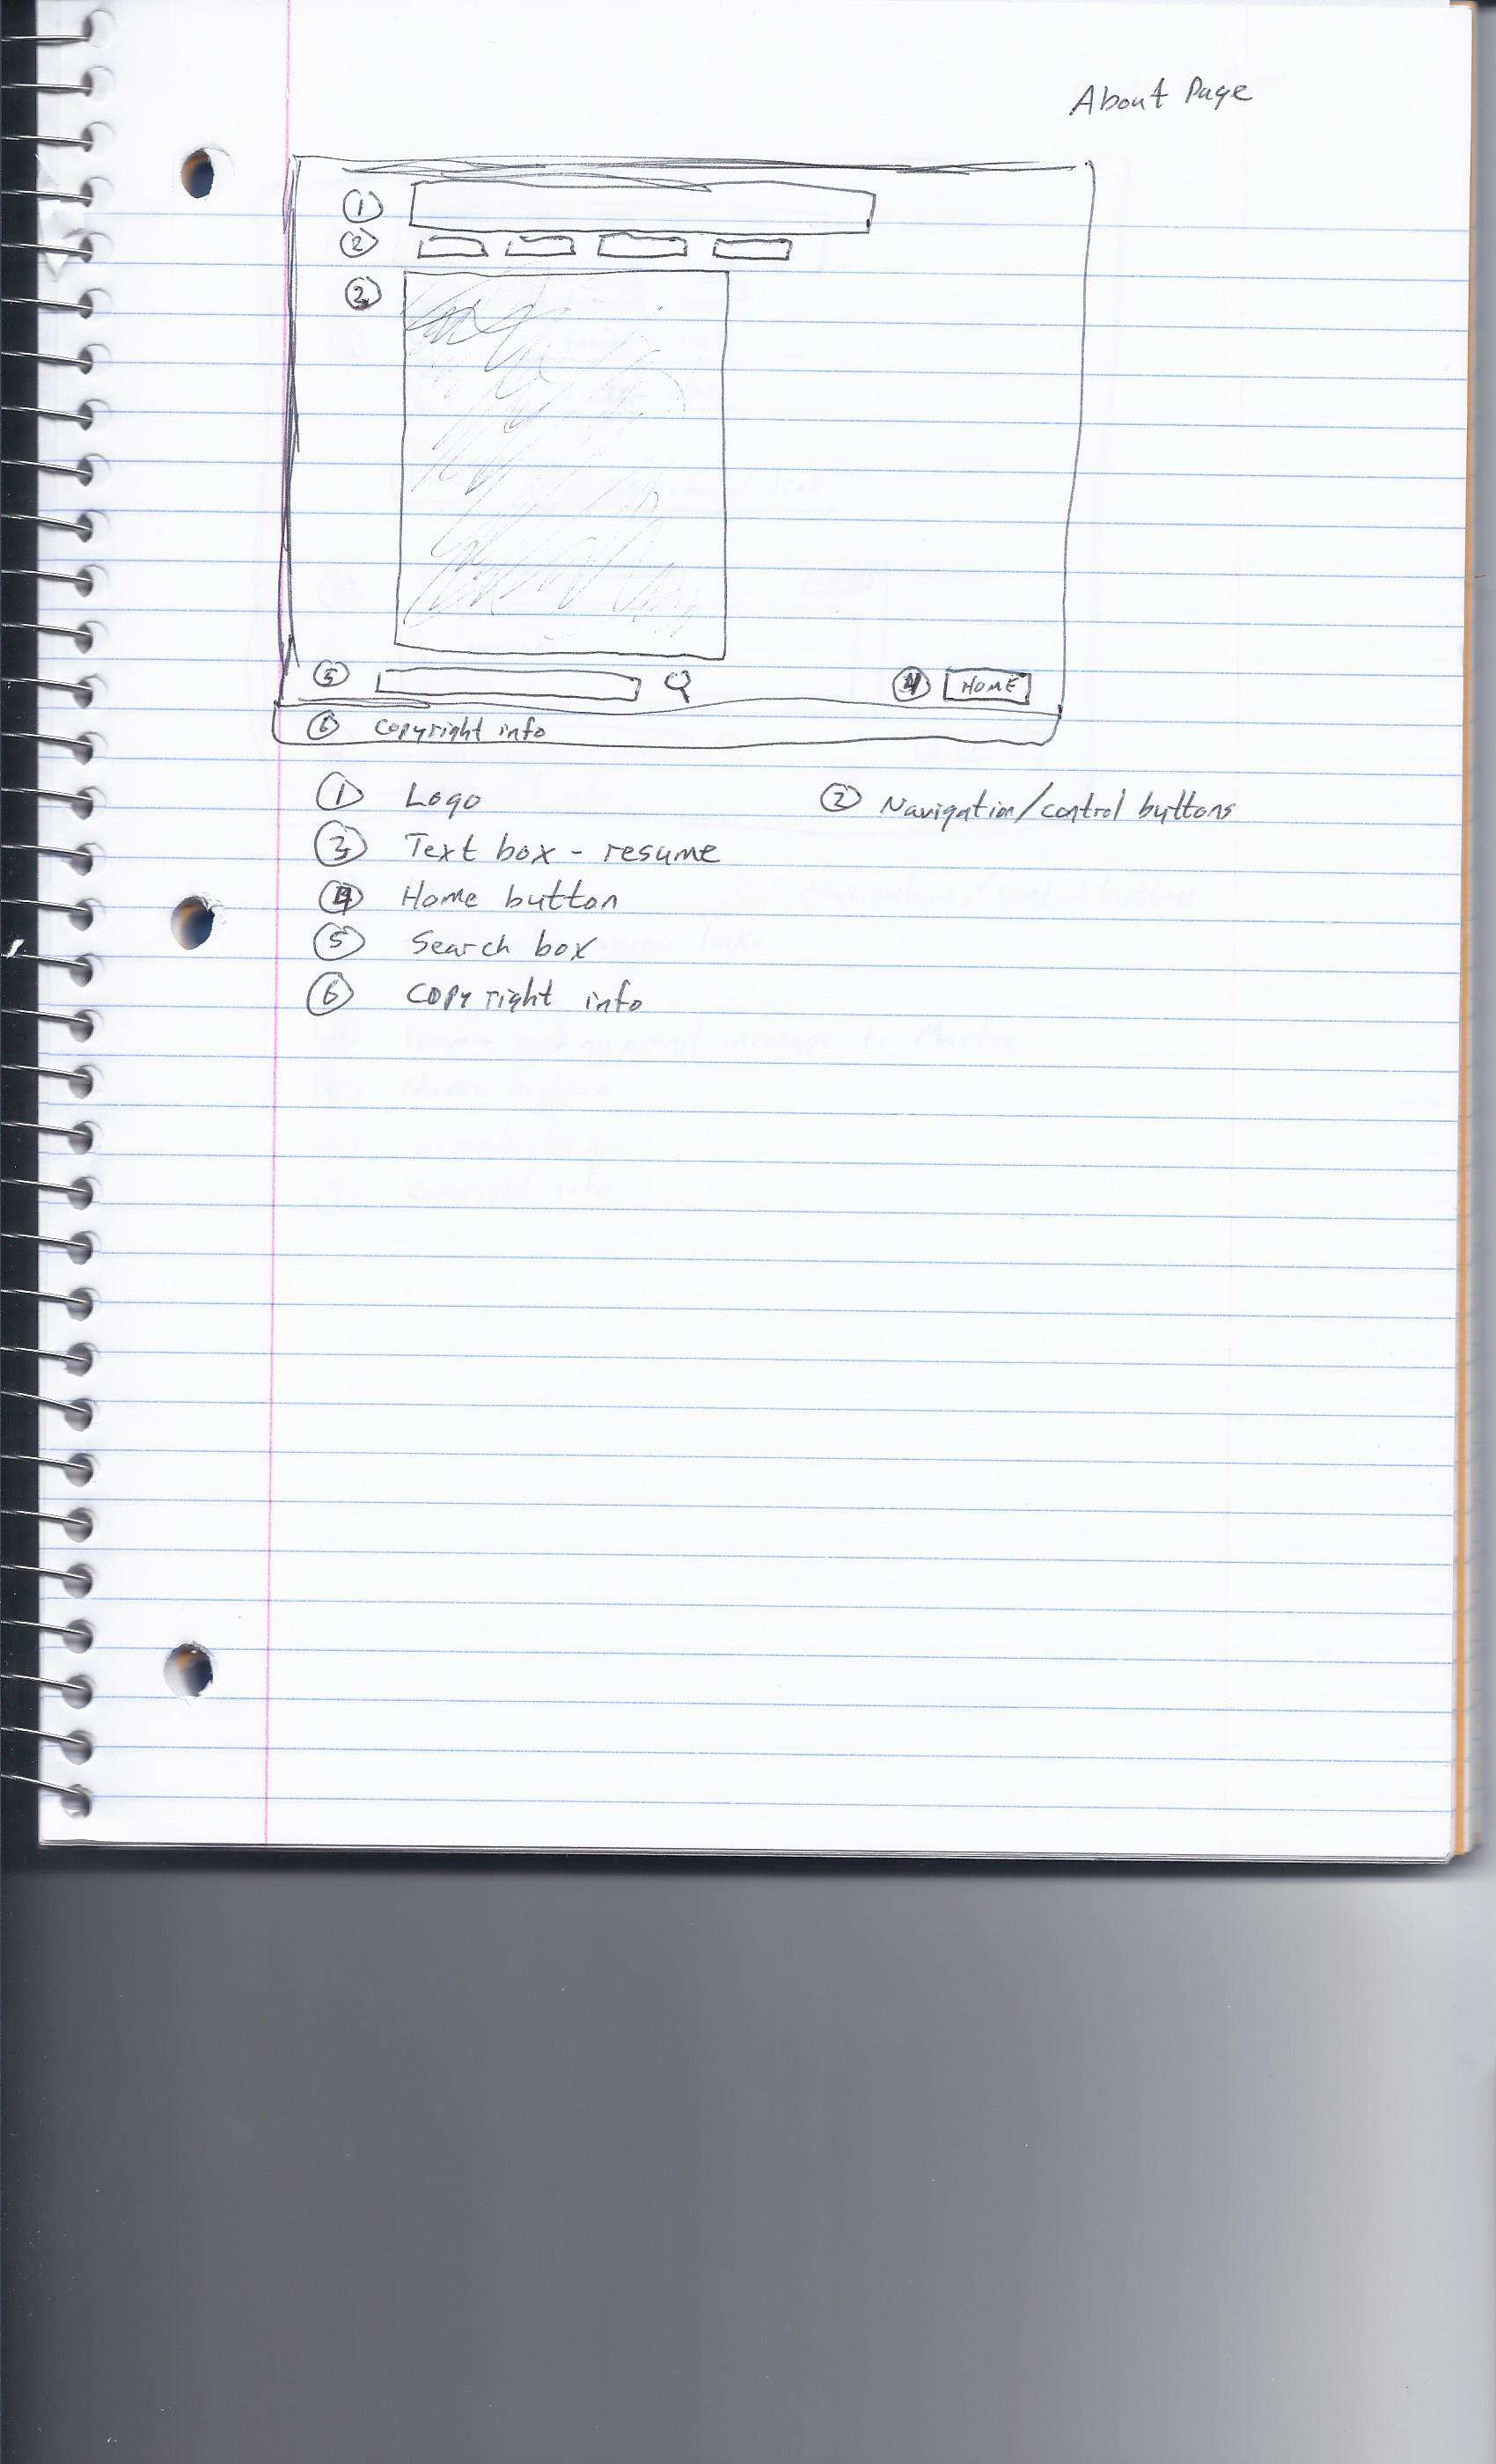 About Page
①
②
③
⑤
④ HOME
⑥ Copyright info
① Logo ② Navigation/control buttons
③ Text box - resume
④ Home button
⑤ Search box
⑥ Copyright info